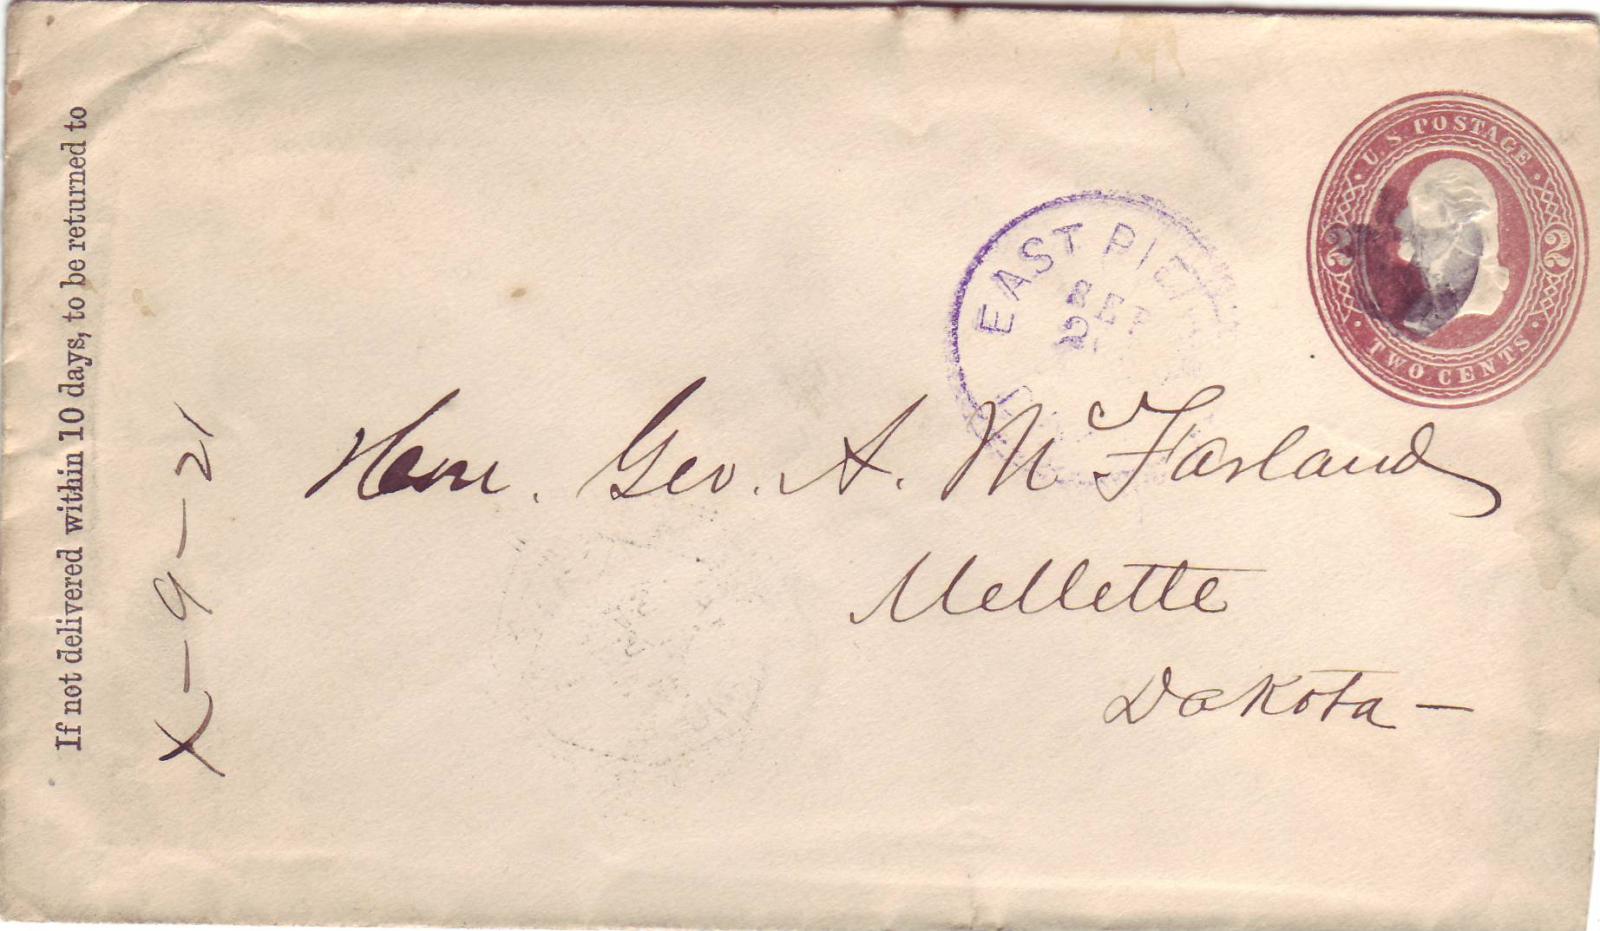 If not delivered within 10 days, to be returned to
X-9-21
U.S. POSTAGE
2 2
TWO CENTS
EAST PIER
SEP
2
Hon. Geo. A. McFarland
Mellette
Dakota -